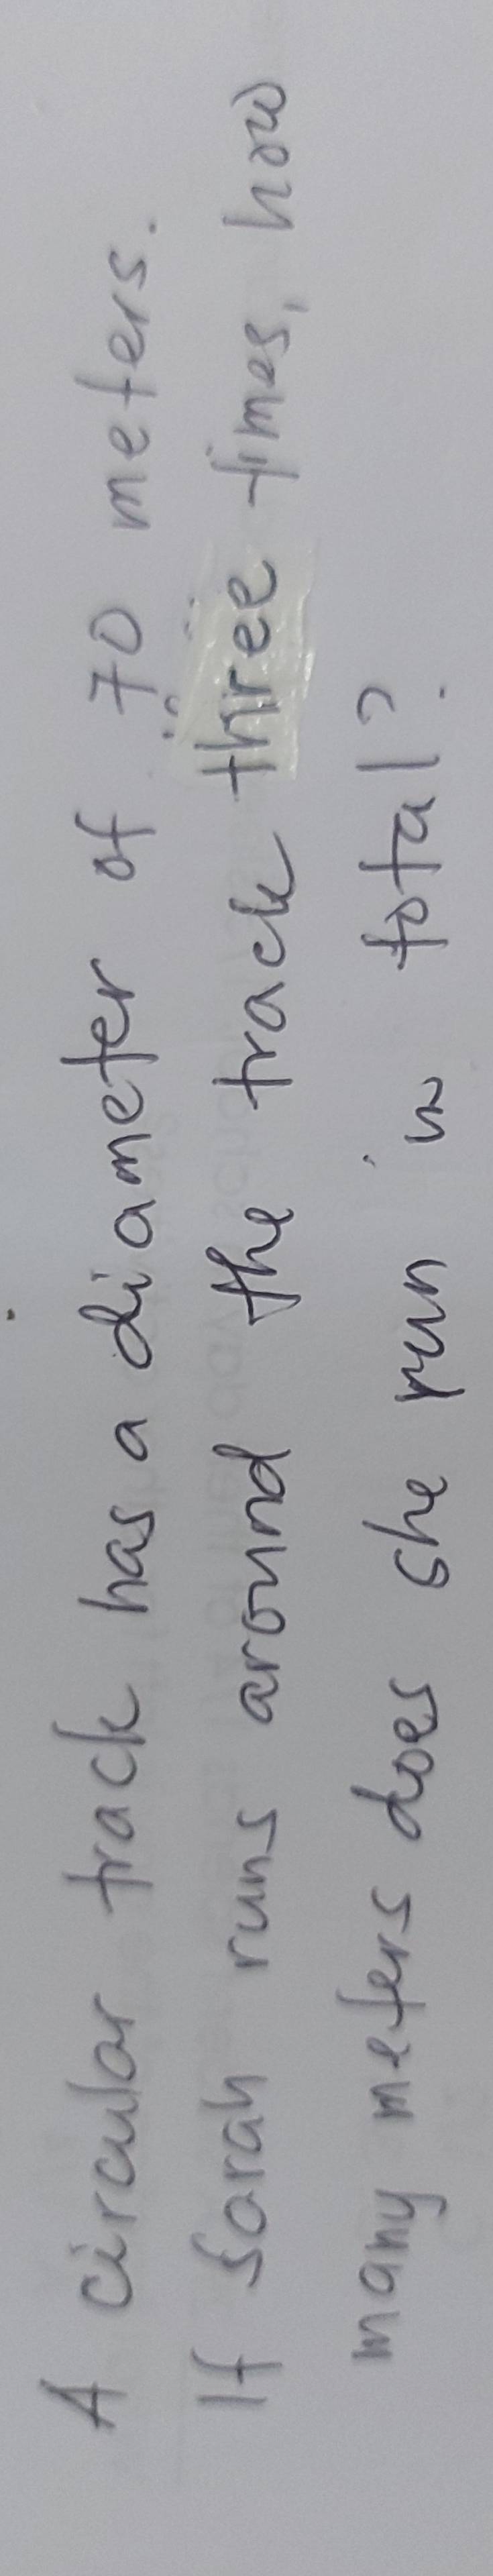 A circular track has a diameter of 70 meters.
If Sarah runs around the track three times, how
many meters does she run in total?